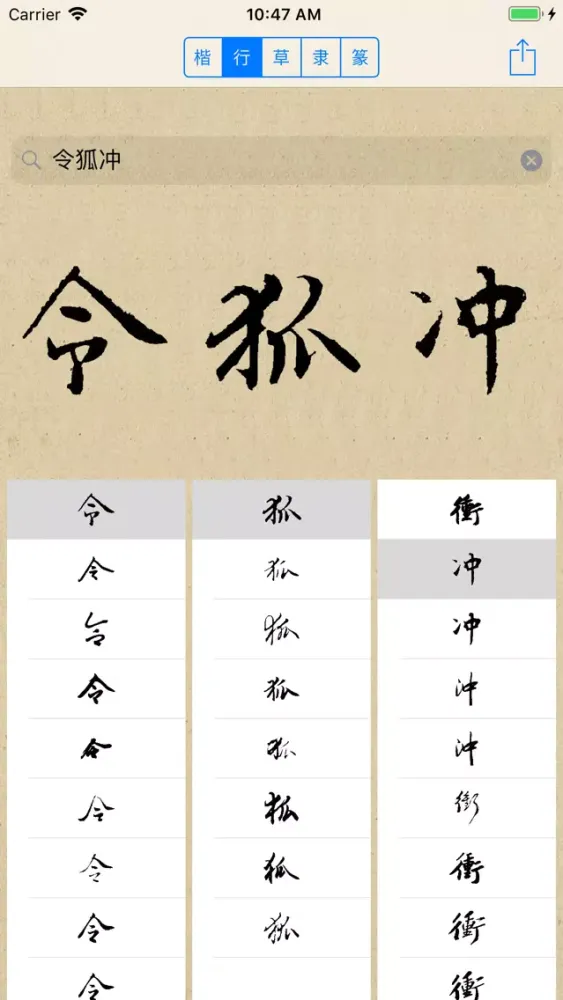 Carrier 10:47 AM
楷 行 草 隶 篆
令狐冲
令狐冲
令 狐 衝
令 狐 冲
令 狐 冲
令 狐 冲
令 狐 冲
令 狐 衝
令 狐 衝
令 狐 衝
令 衝